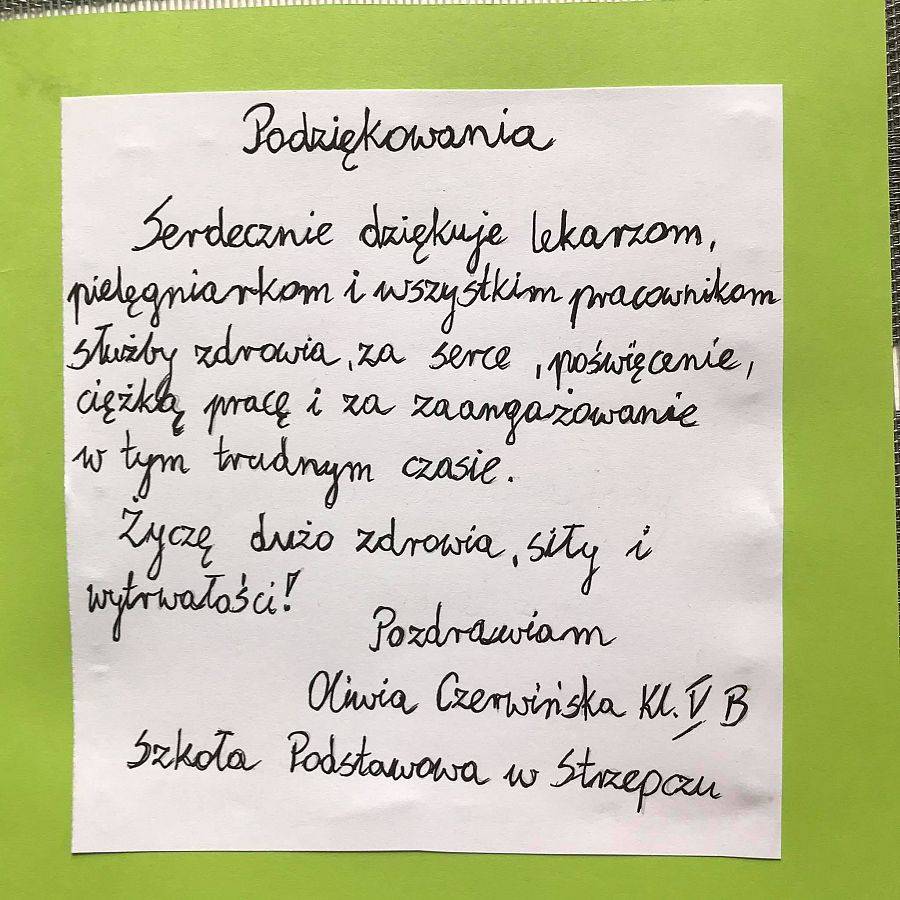 Podziękowania
Serdecznie dziękuje lekarzom,
pielęgniarkom i wszystkim pracownikom
służby zdrowia, za serce, poświęcenie,
ciężką pracę i za zaangażowanie
w tym trudnym czasie.
Życzę dużo zdrowia, siły i
wytrwałości!
Pozdrawiam
Oliwia Czerwińska Kl. V B
Szkoła Podstawowa w Strzepczu